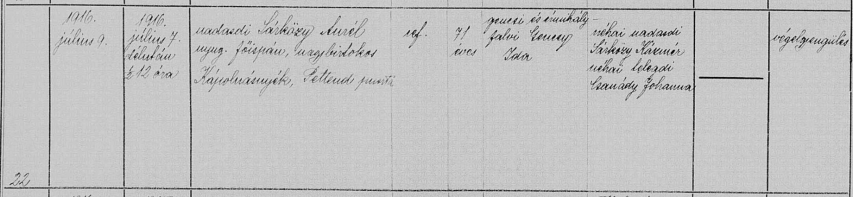 22
1916.
július 9.
1916.
július 7.
délután
½12 óra
nadasdi Sárközy Aurél
nyug. főispán, nagybirtokos
Kápolnásnyék, Pettend puszta
ref.
71
éves
genesi és
falvi Gencsy
Ida
néhai nadasdi
Sárközy Kázmér
néhai telegdi
Csanády Johanna
végelgyengülés